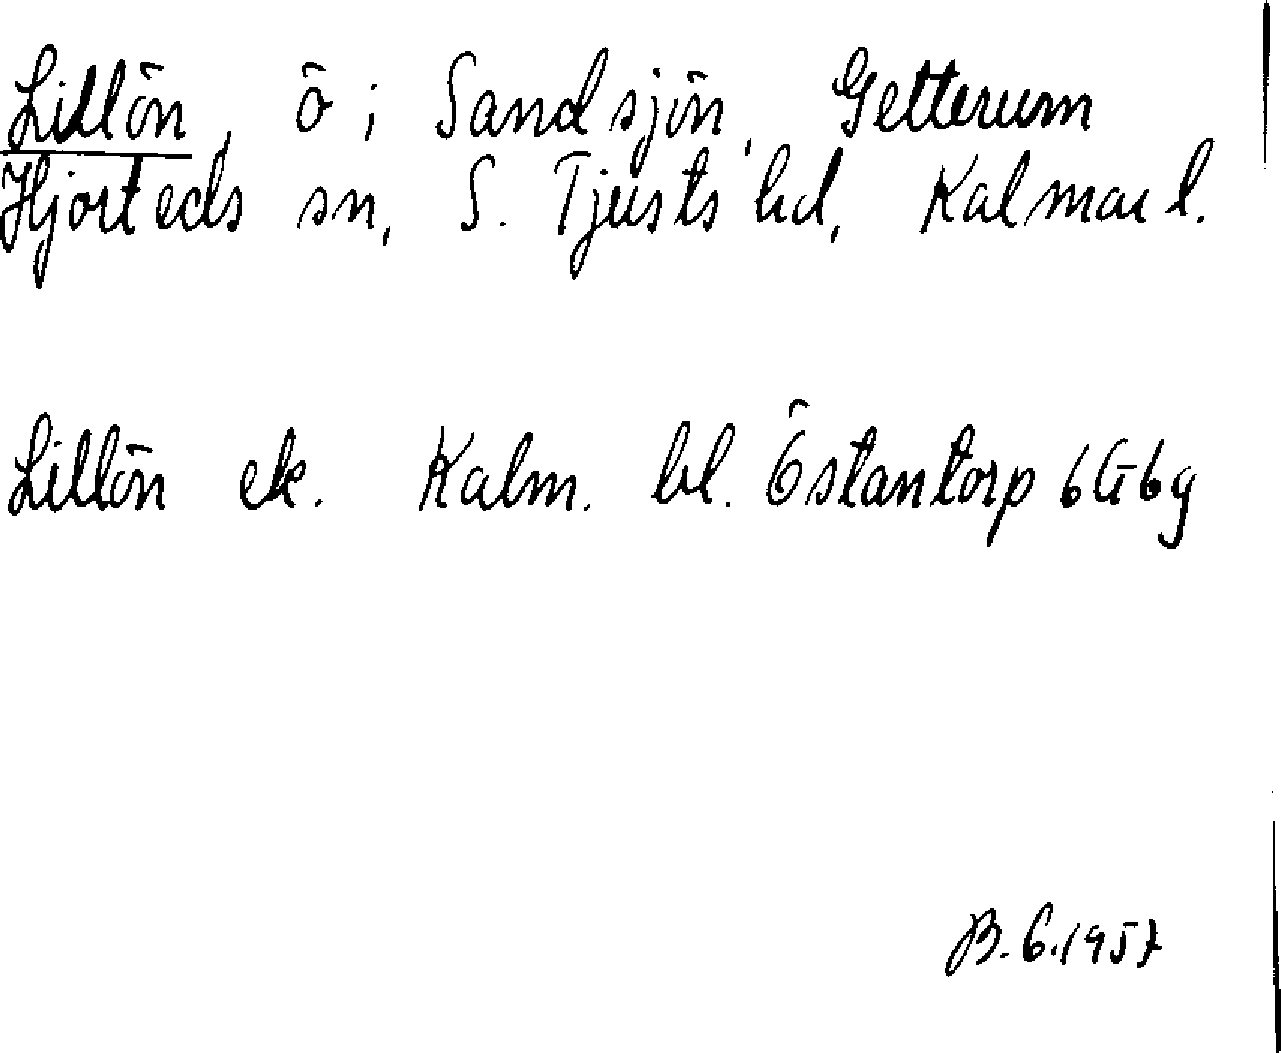 Lillön, ö i Sandsjön, Getterum
Hjorteds sn, S. Tjusts hd, Kalmar l.
Lillön ek. Kalm. bl. Östantorp 6G6g
B.G. 1957